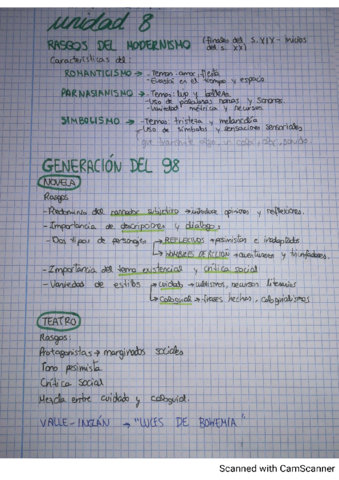 unidad 8
RASGOS DEL MODERNISMO (Finales del s. XIX - inicios del s. XX)
Características del:
ROMANTICISMO → - Temas: amor,
- Evasión en el tiempo y espacio
PARNASIANISMO → - Temas: lujo y belleza
- Uso de palabras raras y sonoras
- Variedad métrica y recursos
SIMBOLISMO → - Temas: tristeza y melancolía
- Uso de símbolos y sensaciones sensoriales
que transmite algo, un color, olor, sonido
GENERACIÓN DEL 98
NOVELA
Rasgos
- Predominio del narrador subjetivo → introduce opiniones y reflexiones.
- Importancia de descripciones y diálogos
- Dos tipos de personajes → REFLEXIVOS → pesimistas e inadaptados
↳ HOMBRES DE ACCIÓN → aventureros y triunfadores.
- Importancia del tema existencial y crítica social
- Variedad de estilos → cuidado → cultismos, recursos literarios
↳ Coloquial → frases hechas, coloquialismos
TEATRO
Rasgos:
Protagonistas → marginados sociales
Tono pesimista
Crítica social
Mezcla entre cuidado y coloquial.
VALLE-INCLÁN → "LUCES DE BOHEMIA"
Scanned with CamScanner